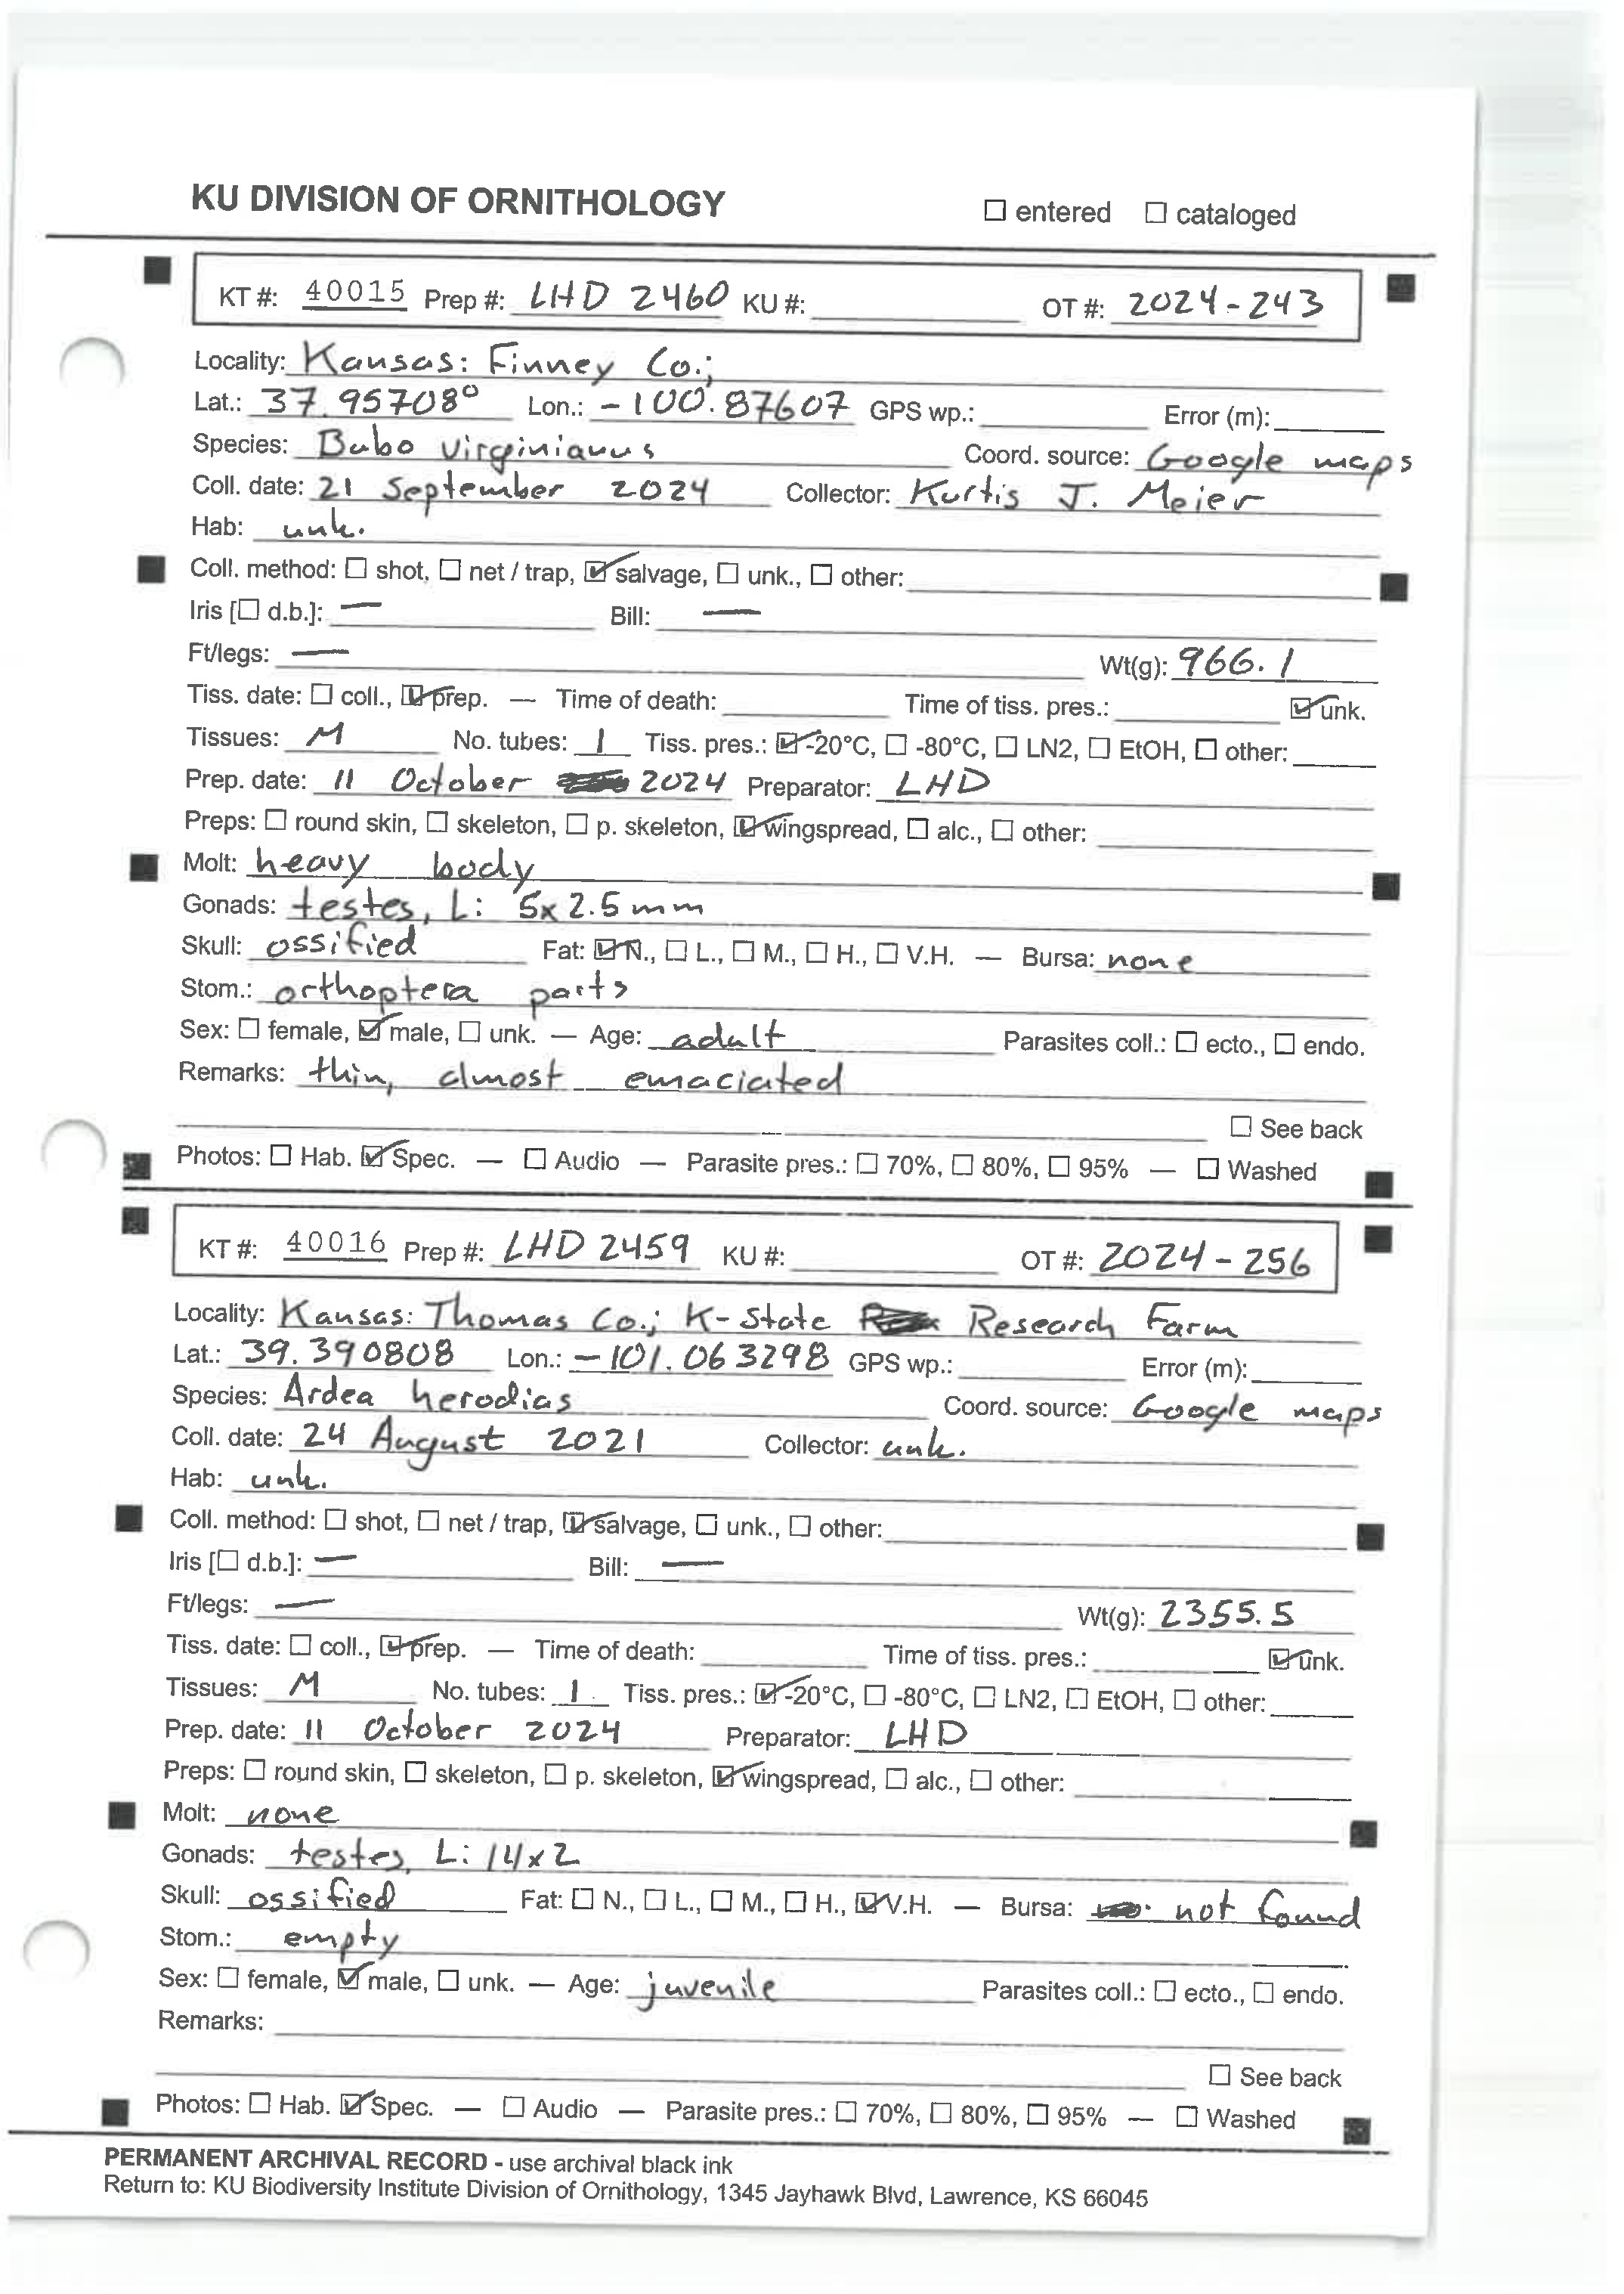 KU DIVISION OF ORNITHOLOGY ☐ entered ☐ cataloged
KT #: 40015 Prep #: LHD 2460 KU #: OT #: 2024-243
Locality: Kansas: Finney Co.;
Lat.: 37.95708° Lon.: -100.87607 GPS wp.: Error (m):
Species: Bubo virginianus Coord. source: Google maps
Coll. date: 21 September 2024 Collector: Kurtis J. Meier
Hab: unk.
Coll. method: ☐ shot, ☐ net / trap, ☑ salvage, ☐ unk., ☐ other:
Iris [☐ d.b.]: — Bill: —
Ft/legs: — Wt(g): 966.1
Tiss. date: ☐ coll., ☑ prep. — Time of death: Time of tiss. pres.: ☑ unk.
Tissues: M No. tubes: 1 Tiss. pres.: ☑ -20°C, ☐ -80°C, ☐ LN2, ☐ EtOH, ☐ other:
Prep. date: 11 October 2024 Preparator: LHD
Preps: ☐ round skin, ☐ skeleton, ☐ p. skeleton, ☑ wingspread, ☐ alc., ☐ other:
Molt: heavy body
Gonads: testes, L: 5x2.5mm
Skull: ossified Fat: ☑ N., ☐ L., ☐ M., ☐ H., ☐ V.H. — Bursa: none
Stom.: orthoptera parts
Sex: ☐ female, ☑ male, ☐ unk. — Age: adult Parasites coll.: ☐ ecto., ☐ endo.
Remarks: thin, almost emaciated
☐ See back
Photos: ☐ Hab. ☑ Spec. — ☐ Audio — Parasite pres.: ☐ 70%, ☐ 80%, ☐ 95% — ☐ Washed
KT #: 40016 Prep #: LHD 2459 KU #: OT #: 2024-256
Locality: Kansas: Thomas Co.; K-State Research Farm
Lat.: 39.390808 Lon.: -101.063298 GPS wp.: Error (m):
Species: Ardea herodias Coord. source: Google maps
Coll. date: 24 August 2021 Collector: unk.
Hab: unk.
Coll. method: ☐ shot, ☐ net / trap, ☑ salvage, ☐ unk., ☐ other:
Iris [☐ d.b.]: — Bill: —
Ft/legs: — Wt(g): 2355.5
Tiss. date: ☐ coll., ☑ prep. — Time of death: Time of tiss. pres.: ☑ unk.
Tissues: M No. tubes: 1 Tiss. pres.: ☑ -20°C, ☐ -80°C, ☐ LN2, ☐ EtOH, ☐ other:
Prep. date: 11 October 2024 Preparator: LHD
Preps: ☐ round skin, ☐ skeleton, ☐ p. skeleton, ☑ wingspread, ☐ alc., ☐ other:
Molt: none
Gonads: testes, L: 14x2
Skull: ossified Fat: ☐ N., ☐ L., ☐ M., ☐ H., ☑ V.H. — Bursa: not found
Stom.: empty
Sex: ☐ female, ☑ male, ☐ unk. — Age: juvenile Parasites coll.: ☐ ecto., ☐ endo.
Remarks:
☐ See back
Photos: ☐ Hab. ☑ Spec. — ☐ Audio — Parasite pres.: ☐ 70%, ☐ 80%, ☐ 95% — ☐ Washed
PERMANENT ARCHIVAL RECORD - use archival black ink
Return to: KU Biodiversity Institute Division of Ornithology, 1345 Jayhawk Blvd, Lawrence, KS 66045